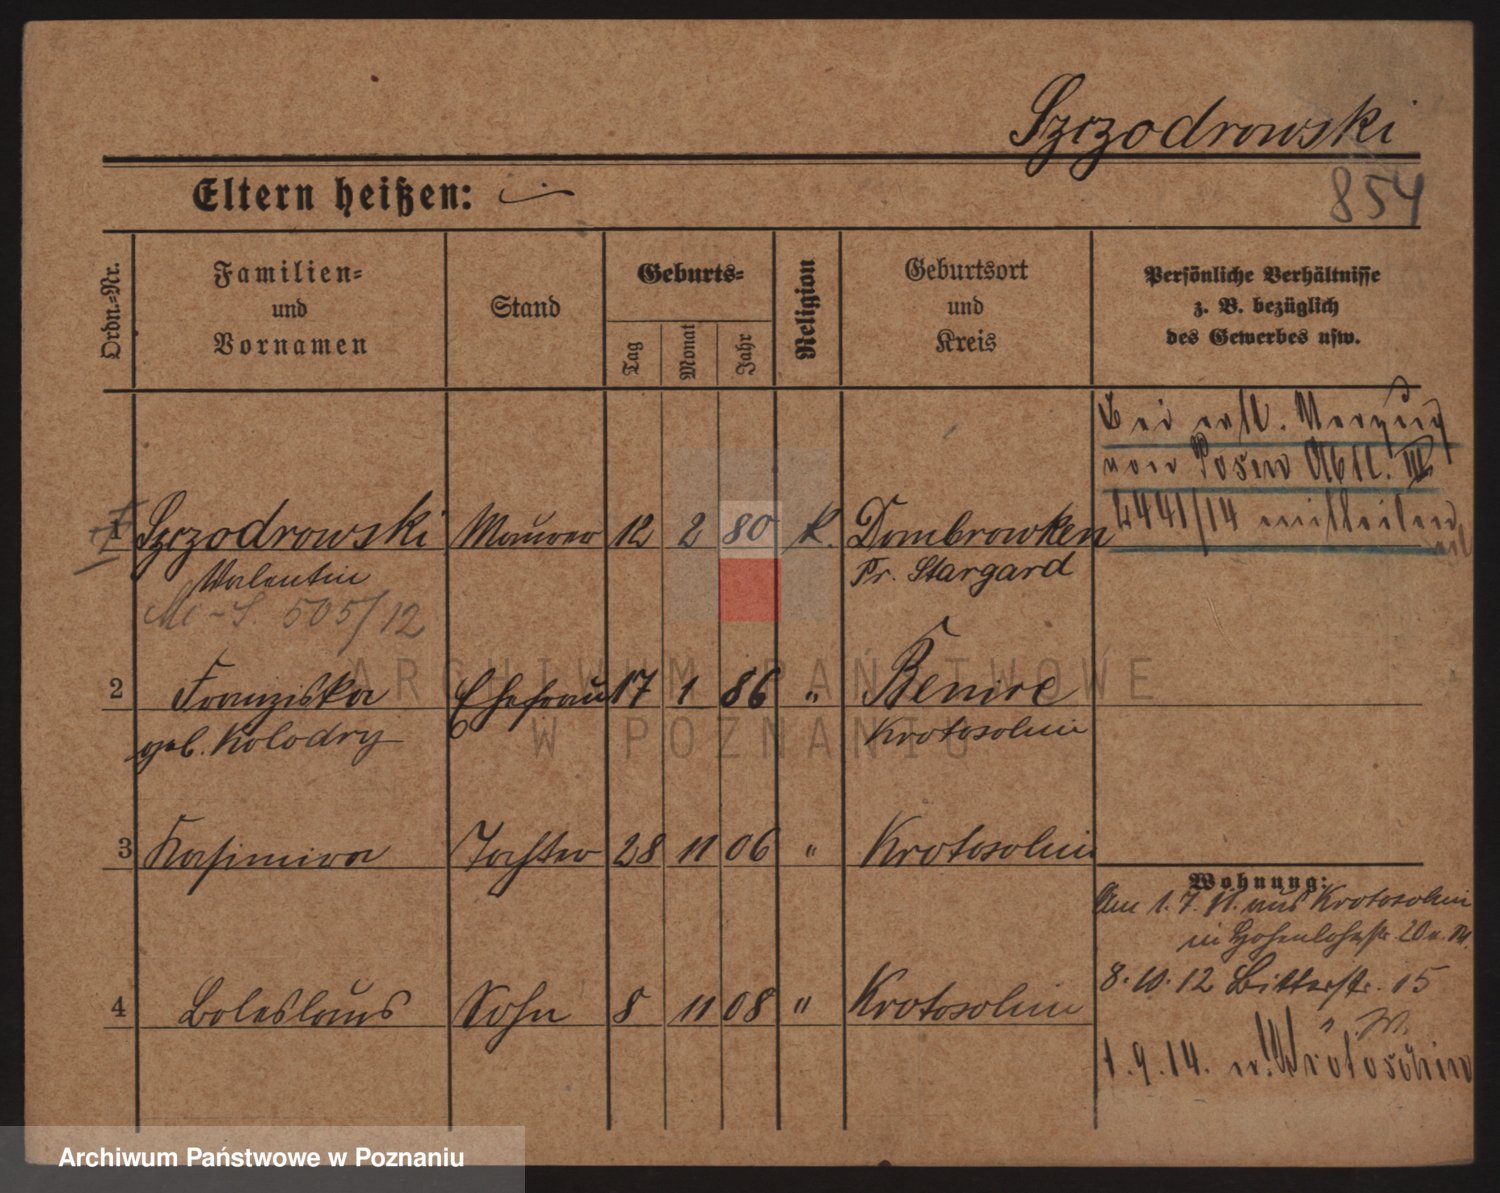 Szczodrowski
854
Eltern heißen:
Ordn.=Nr.
Familien=
und
Vornamen
Stand
Geburts=
Tag
Monat
Jahr
Religion
Geburtsort
und
Kreis
Persönliche Verhältnisse
z. B. bezüglich
des Gewerbes usw.
Bei evtl. Verzug
von Posen Abtl. III
2441/14 mitteilen
1 Szczodrowski Maurer 12 2 80 k. Dombrowken
Valentin Pr. Stargard
M-S. 505/12
2 Franziska Ehefrau 17 1 86 " Benice
geb. Kolodzy Krotoschin
3 Kasimira Tochter 28 11 06 " Krotoschin
Wohnung:
Am 1.7.11. aus Krotoschin
in Hohenlohestr. 20
8.10.12 Bitterstr. 15
4 Boleslaus Sohn 8 11 08 " Krotoschin
1.9.14. n. Krotoschin
ARCHIWUM PAŃSTWOWE
W POZNANIU
Archiwum Państwowe w Poznaniu